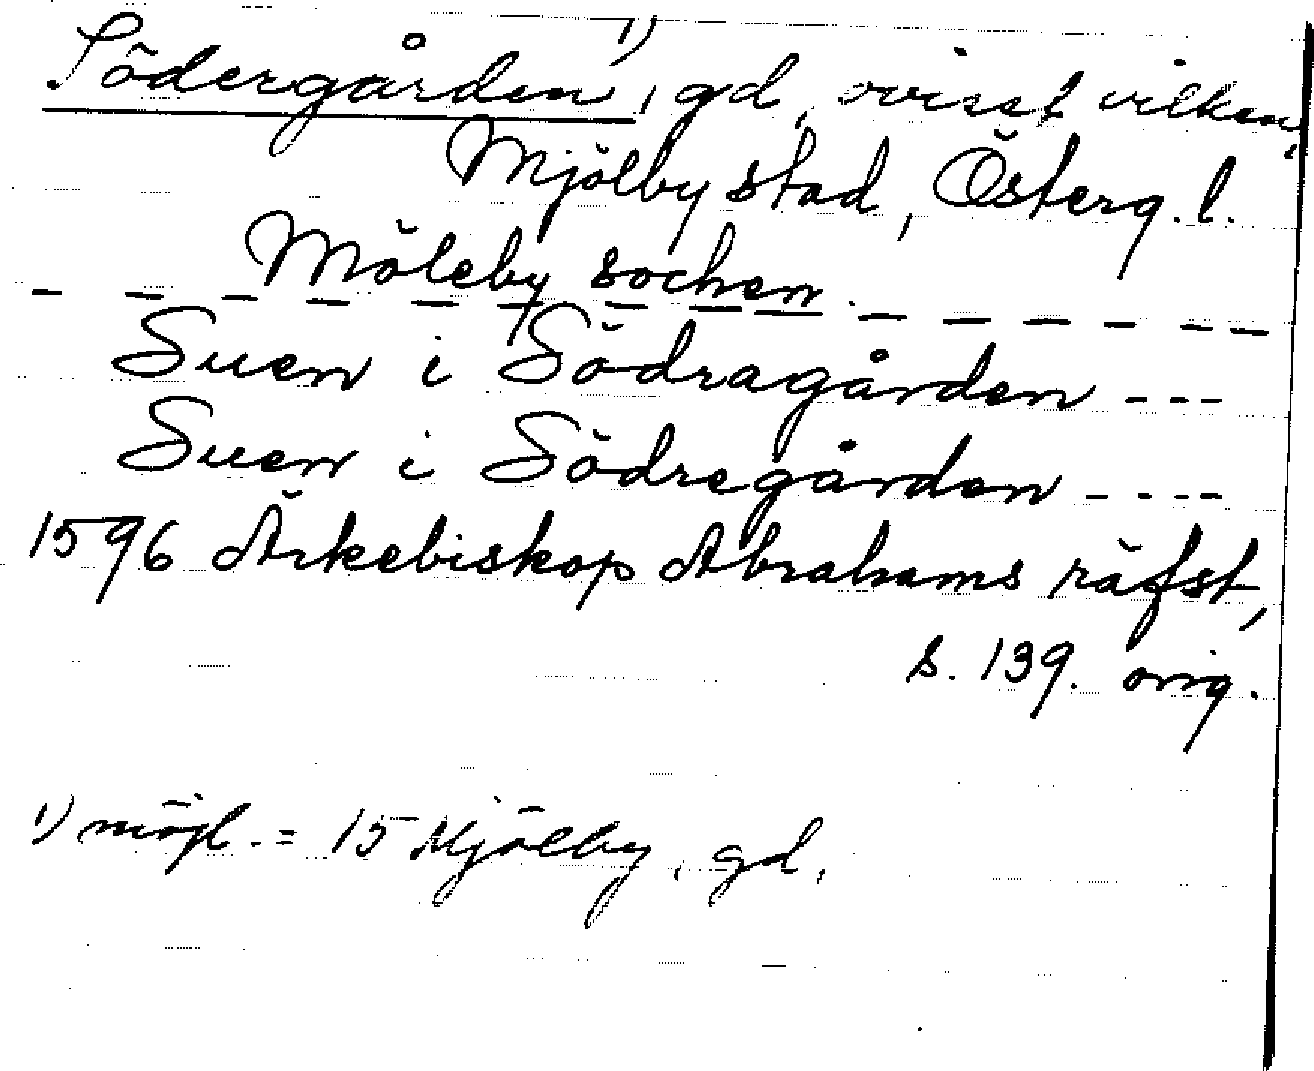 Södergården 1), gd, ovisst vilken,
Mjölby stad, Österg. l.
Möleby sochen.
Suen i Södragården ---
Suen i Södregården ----
1596 Ärkebiskop Abrahams räfst,
s. 139. orig.
1) möjl. = 15 Mjölby, gd,